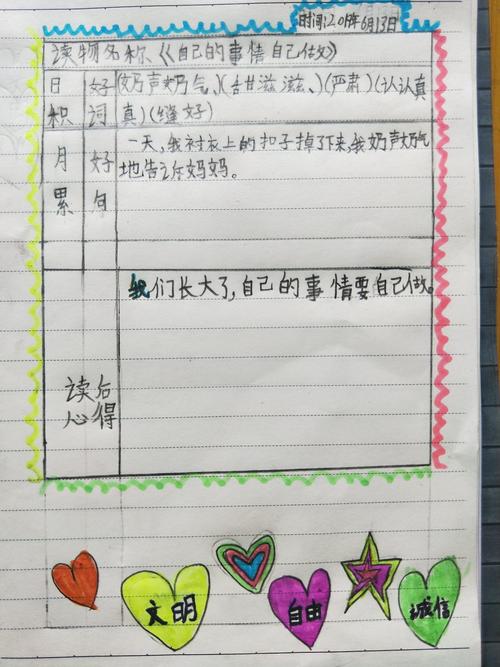 时间:201年6月13日
读物名称《自己的事情自己做》
日积月累
好词
(奶声奶气、)(甜滋滋、)(严肃)(认认真
真)(缝好)
好句
一天,我衬衣上的扣子掉了下来,我奶声奶气
地告诉妈妈。
读后
心得
我们长大了,自己的事情要自己做。
文明
自由
诚信